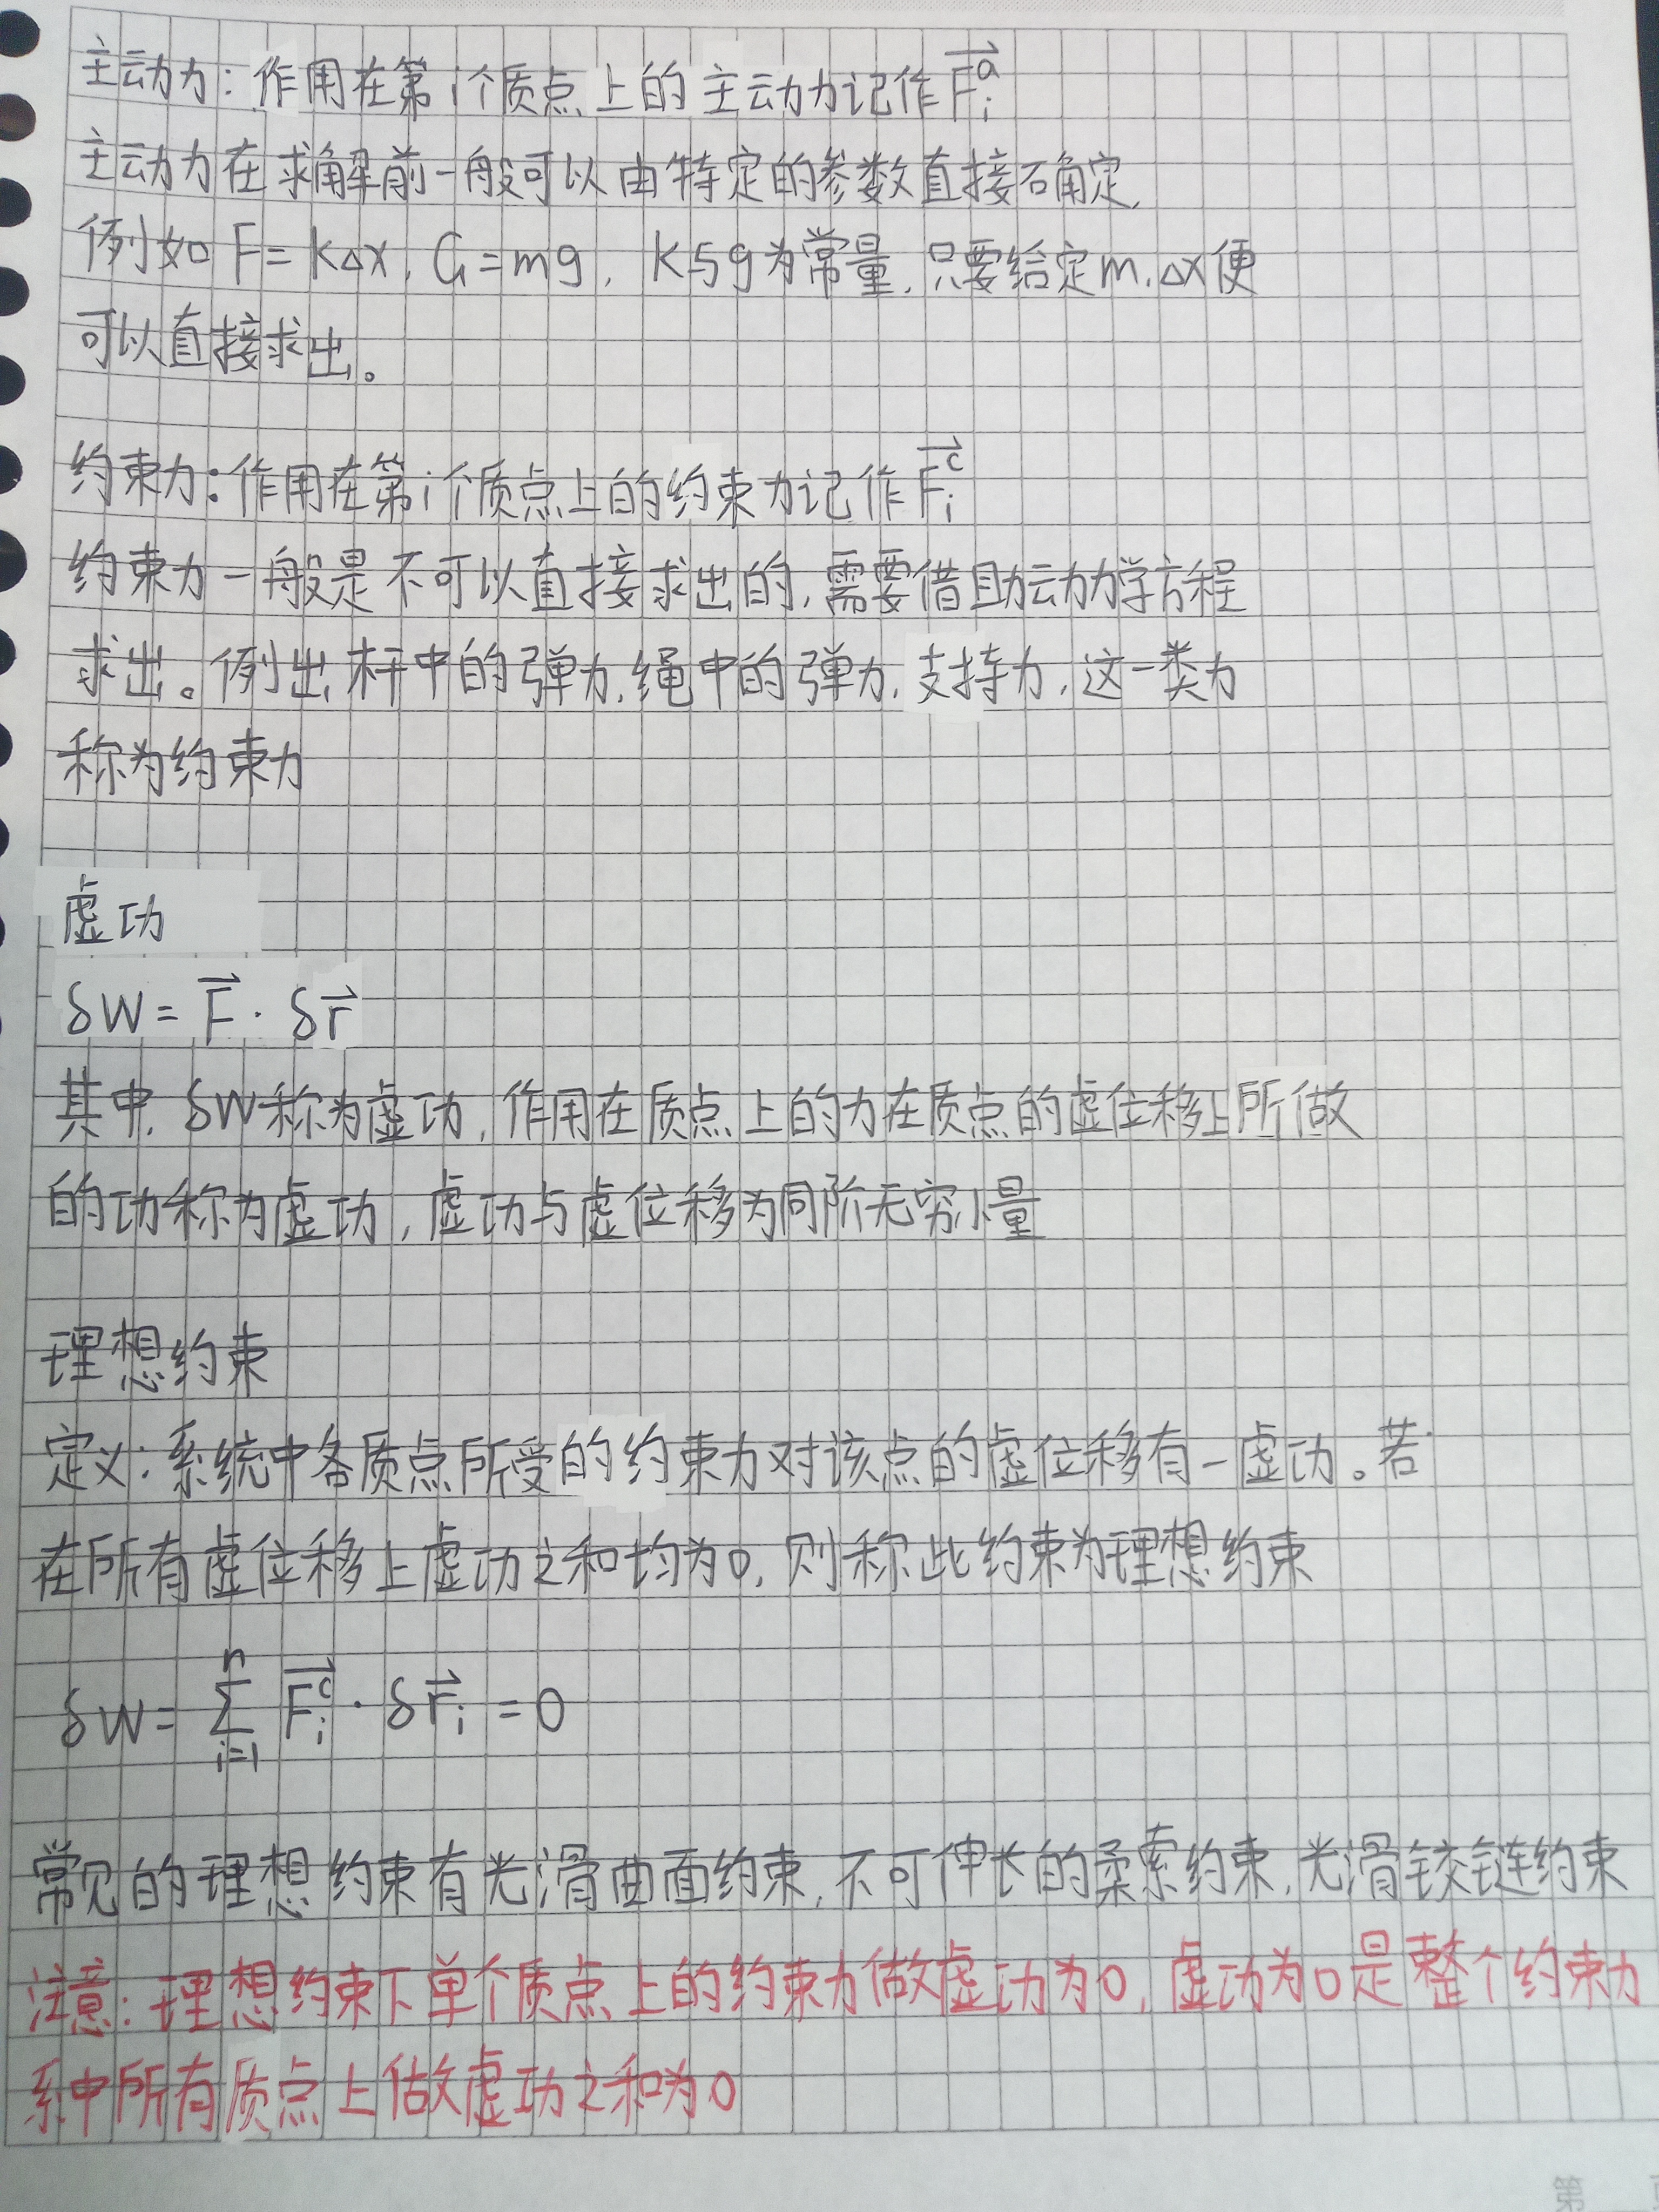 主动力：作用在第i个质点上的主动力记作$\vec{F_i^a}$
主动力在求解前一般可以由特定的参数直接确定，
例如F=kΔx，G=mg，k与g为常量，只要给定m，Δx便
可以直接求出。
约束力：作用在第i个质点上的约束力记作$\vec{F_i^c}$
约束力一般是不可以直接求出的，需要借助动力学方程
求出。例出杆中的弹力，绳中的弹力，支持力，这一类力
称为约束力
虚功
$\delta W=\vec{F}\cdot\delta\vec{r}$
其中，δW称为虚功，作用在质点上的力在质点的虚位移上所做
的功称为虚功，虚功与虚位移为同阶无穷小量
理想约束
定义：系统中各质点所受的约束力对该点的虚位移有一虚功。若
在所有虚位移上虚功之和均为0，则称此约束为理想约束
$\delta W=\sum_{i=1}^{n}\vec{F_i^c}\cdot\delta\vec{r}_i=0$
常见的理想约束有光滑曲面约束，不可伸长的柔索约束，光滑铰链约束
注意：理想约束下单个质点上的约束力做虚功为0，虚功为0是整个约束力
系中所有质点上做虚功之和为0
第